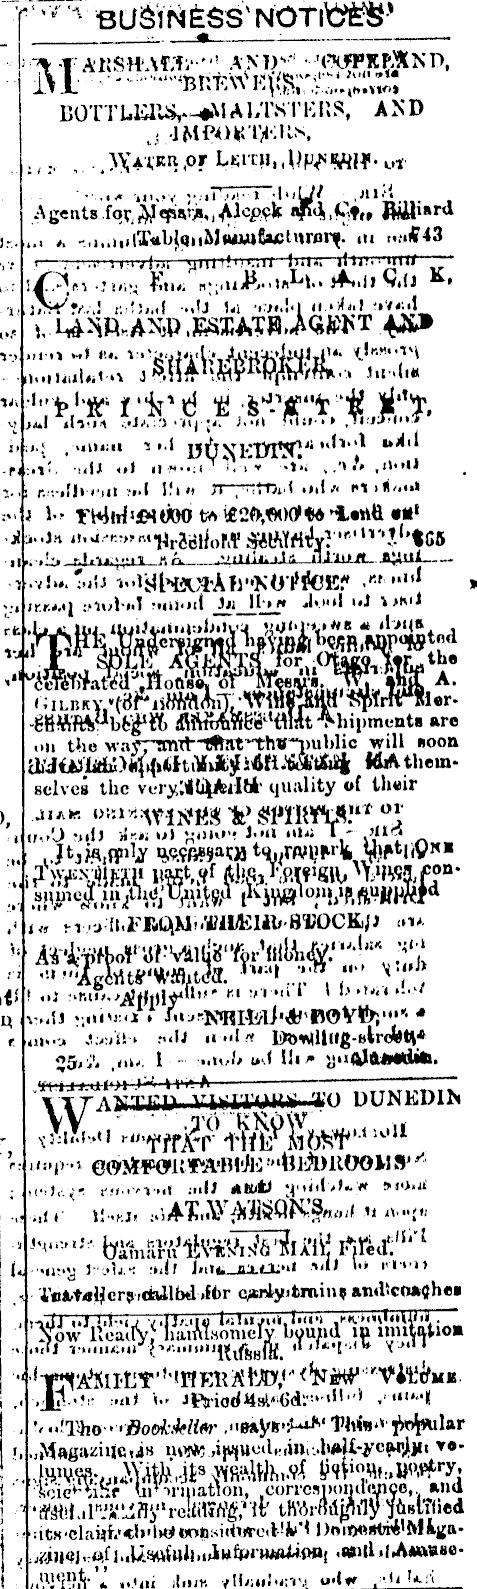 BUSINESS NOTICES
MARSHALL AND COPELAND,
BREWERS
BOTTLERS, MALTSTERS, AND
IMPORTERS,
WATER OF LEITH, DUNEDIN.
Agents for Messrs. Alcock and Co. Billiard
Table Manufacturers. 743
C. F. BLACK,
LAND AND ESTATE AGENT AND
SHAREBROKER,
PRINCES-STREET,
DUNEDIN.
From £1000 to £20,000 to Lend on
Freehold Security. 365
SPECIAL NOTICE.
THE Undersigned having been appointed
SOLE AGENTS for Otago for the
celebrated House of Messrs. W. and A.
GILBEY (of London), Wine and Spirit Mer-
chants, beg to announce that Shipments are
on the way, and that the public will soon
have an opportunity of testing for them-
selves the very superior quality of their
WINES & SPIRITS.
It is only necessary to remark that ONE
TWENTIETH part of the Foreign Wines con-
sumed in the United Kingdom is supplied
FROM THEIR STOCK,
As a proof of value for money.
Agents wanted.
Apply
NEILL & BOYD,
Dowling-street,
Dunedin.
WANTED VISITORS TO DUNEDIN
TO KNOW
THAT THE MOST
COMFORTABLE BEDROOMS
AT WATSON'S.
Oamaru EVENING MAIL Filed.
Travellers called for early trains and coaches
Now Ready, handsomely bound in imitation
Russia.
FAMILY HERALD, NEW VOLUME.
Price 4s. 6d.
The Bookseller says:—"This popular
Magazine is now issued in half-yearly vo-
lumes. With its wealth of fiction, poetry,
scientific information, correspondence, and
useful family reading, it thoroughly justified
its claim to be considered a 'Domestic Maga-
zine of Useful Information and Amuse-
ment.'"